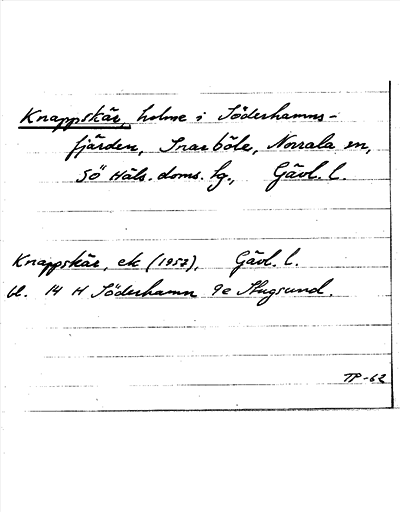 Knappskär, holme i Söderhamns-
fjärden, Snarböle, Norrala sn,
SÖ Häls. doms. hg., Gävl. l.
Knappskär, ek (1957), Gävl. l.
bl. 14 H Söderhamn 9e Stugsund.
TP-62